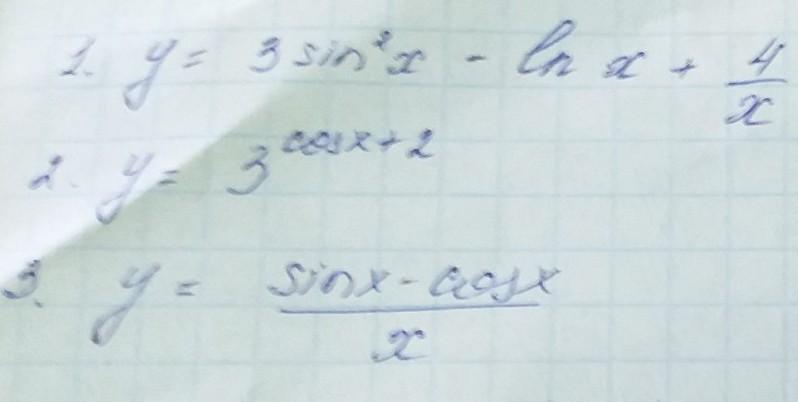 1. y = 3 sin²x - ln x + 4/x
2. y = 3^(cosx+2)
3. y = (sinx - cosx)/x